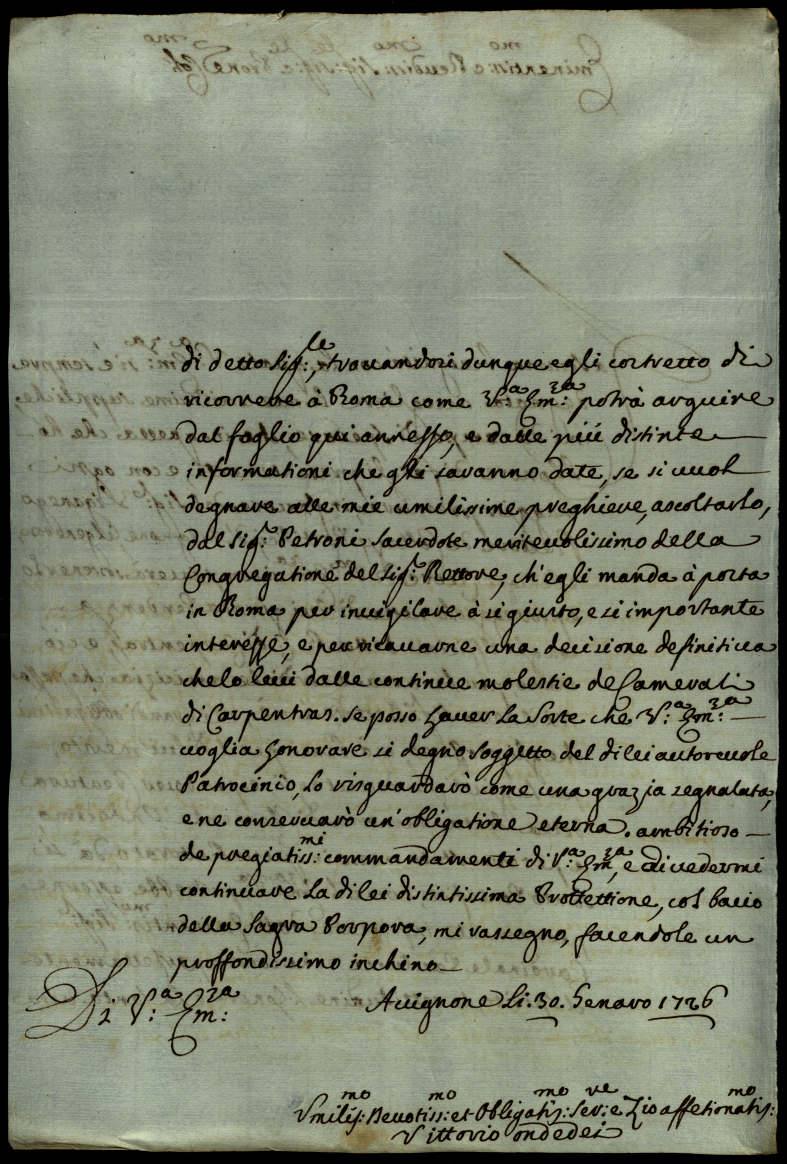 di detto Sig:le, trovandosi dunque egli costretto di
ricorrere à Roma come V:a Em:za potrà arguire
dal foglio qui annesso, e dalle più distinte
informationi che gli saranno date, se si vuol
degnare alle mie umilissime preghiere, ascoltarlo,
dal Sig:r Petroni sacerdote meritevolissimo della
Congregatione del Sig:r Rettore, ch'egli manda à posta
in Roma per invigilare à si giusto, e si importante
interesse, e per ricavarne una decisione definitiva
che lo levi dalle continue molestie de Camerali
di Carpentras. Se posso haver la sorte che V:a Em:za
voglia honorare si degno soggetto del di lei autorevole
Patrocinio, lo risguardarò come una grazia segnalata,
e ne conservarò un'obligatione eterna. ambitioso
de pregiatiss:mi commandamenti di V:a Em:za, e di vedermi
continuare la di lei distintissima Prottettione, col bacio
della Sagra Porpora, mi rassegno, facendole un
proffondissimo inchino
Avignone li. 30. Genaro 1726
Di V:a Em:za
Umilis:mo Devotiss:mo et Obligatis:mo Ser:ve e Zio affetionatis:mo
Vittorio Ondedei